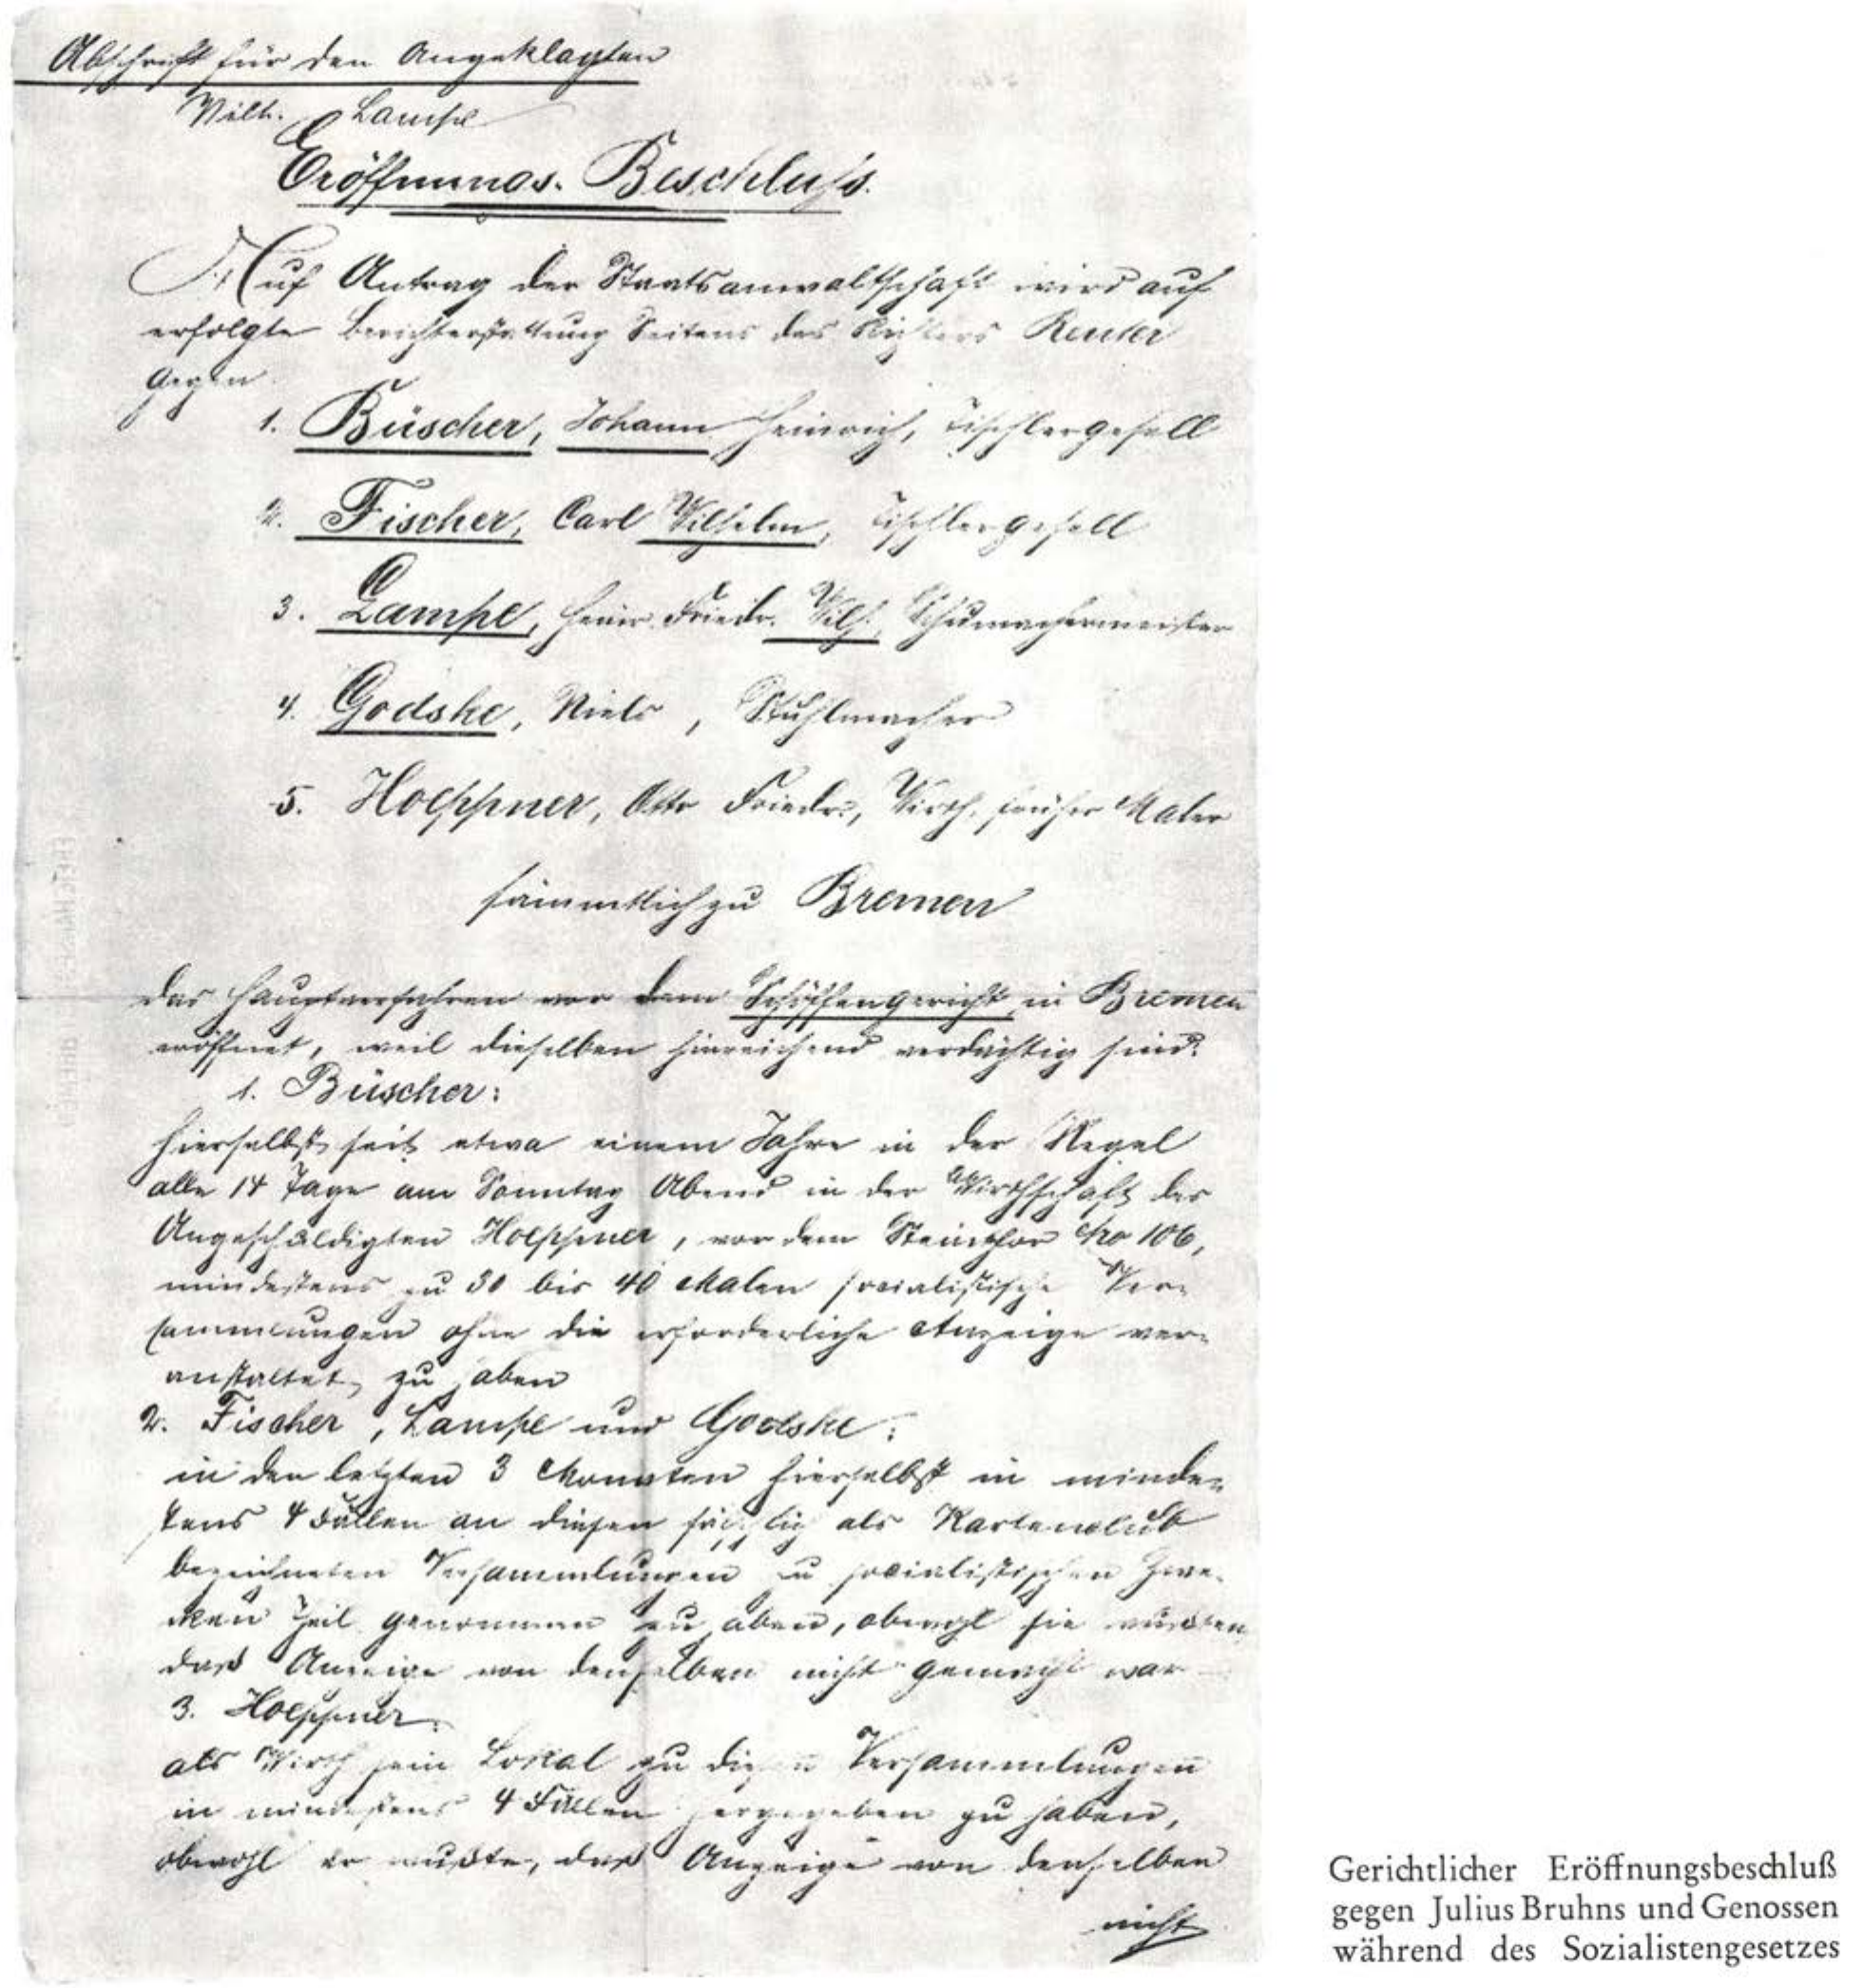 Abschrift für den Angeklagten
Wilh. Lampe
Eröffnungs-Beschluß.
Auf Antrag der Staatsanwaltschaft wird auf
erfolgte Berichterstattung Seitens des Richters Reuter
gegen
1. Büscher, Johann Heinrich, Tischlergesell
2. Fischer, Carl Wilhelm, Tischlergesell
3. Lampe, Heinr. Friedr. Wilh., Schumachermeister
4. Godske, Niels, Stuhlmacher
5. Hoeppner, Otto Friedr., Wirth, früher Maler
sämmtlich zu Bremen
das Hauptverfahren vor dem Schöffengericht in Bremen
eröffnet, weil dieselben hinreichend verdächtig sind:
1. Büscher:
hierselbst seit etwa einem Jahre in der Regel
alle 14 Tage am Sonntag Abend in der Wirthschaft des
Angeschuldigten Hoeppner, vor dem Steinthor No 106,
mindestens zu 30 bis 40 Malen socialistische Ver-
sammlungen ohne die erforderliche Anzeige ver-
anstaltet zu haben
2. Fischer, Lampe und Godske:
in den letzten 3 Monaten hierselbst in minde-
stens 4 Fällen an diesen fälschlich als Kartenclub
bezeichneten Versammlungen zu socialistischen Zwe-
cken Theil genommen zu haben, obwohl sie wußten
daß Anzeige von denselben nicht gemacht war
3. Hoeppner:
als Wirth sein Lokal zu diesen Versammlungen
in mindestens 4 Fällen hergegeben zu haben,
obwohl er wußte, daß Anzeige von denselben
nicht
Gerichtlicher Eröffnungsbeschluß
gegen Julius Bruhns und Genossen
während des Sozialistengesetzes